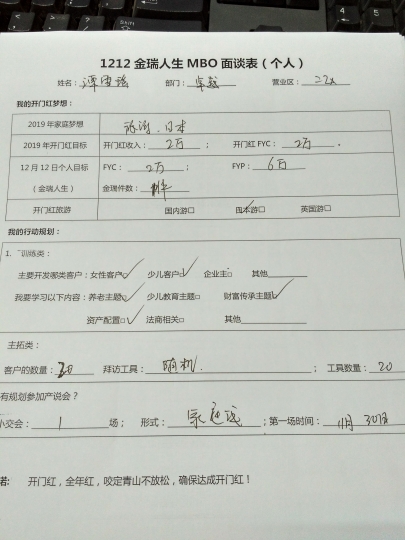 1212 金瑞人生 MBO 面谈表（个人）
姓名： 部门：卓越 营业区：
我的开门红梦想：
2019 年家庭梦想 旅游，日本
2019 年开门红目标 开门红收入：2万； 开门红 FYC：2万.
12 月 12 日个人目标 FYC：2万； FYP：6万
（金瑞人生） 金瑞件数：
开门红旅游 国内游□ 日本游□ 英国游□
我的行动规划：
1. 训练类：
主要开发哪类客户：女性客户☑ 少儿客户☑ 企业主□ 其他
我要学习以下内容：养老主题☑ 少儿教育主题□ 财富传承主题☑
资产配置☑ 法商相关□ 其他
主拓类：
客户的数量：30 拜访工具：随机； 工具数量：20
有规划参加产说会？
小交会：1 场； 形式：家庭式；第一场时间：11月30日
诺： 开门红，全年红，咬定青山不放松，确保达成开门红！